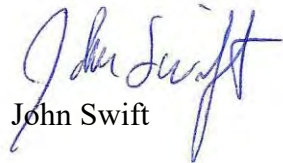 John Swift
John Swift